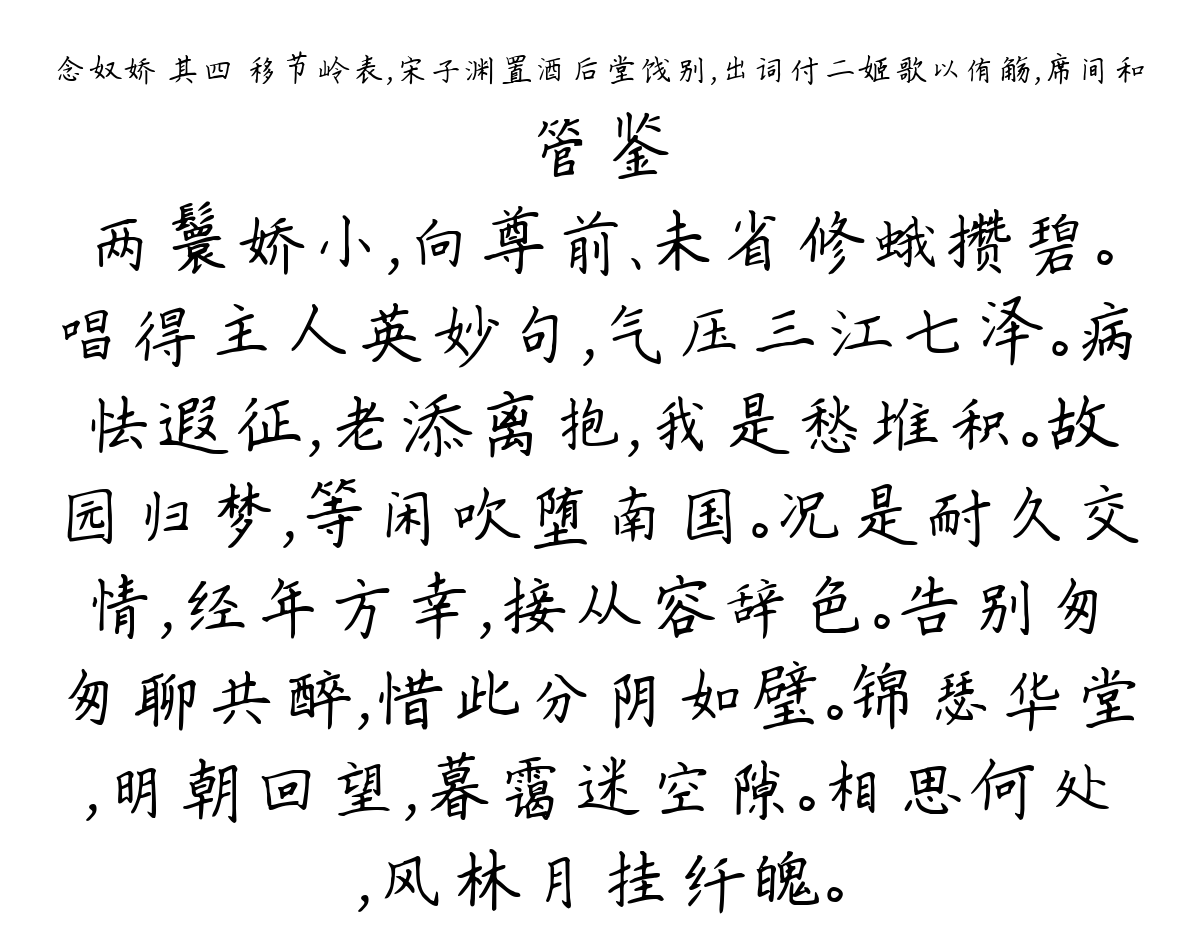 念奴娇 其四 移节岭表,宋子渊置酒后堂饯别,出词付二姬歌以侑觞,席间和
管鉴
两鬟娇小,向尊前、未省修蛾攒碧。
唱得主人英妙句,气压三江七泽。病
怯遐征,老添离抱,我是愁堆积。故
园归梦,等闲吹堕南国。况是耐久交
情,经年方幸,接从容辞色。告别匆
匆聊共醉,惜此分阴如璧。锦瑟华堂
,明朝回望,暮霭迷空隙。相思何处
,风林月挂纤魄。